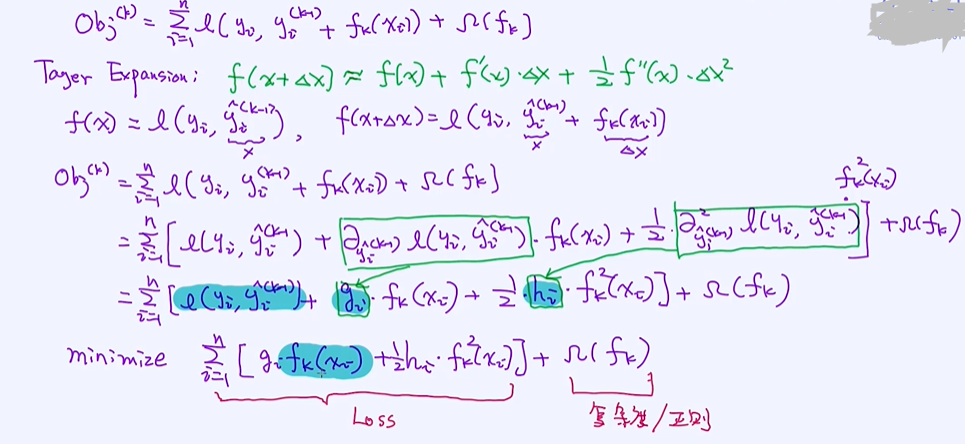 Obj^{(k)} = \sum_{i=1}^{n} l(y_i, y_i^{(k-1)} + f_k(x_i)) + Ω(f_k)
Tayer Expansion: f(x+Δx) ≈ f(x) + f'(x)·Δx + \frac{1}{2} f''(x)·Δx^2
f(x) = l(y_i, \hat{y}_i^{(k-1)}), f(x+Δx) = l(y_i, \hat{y}_i^{(k-1)} + f_k(x_i))
x x Δx
Obj^{(k)} = \sum_{i=1}^{n} l(y_i, y_i^{(k-1)} + f_k(x_i) + Ω(f_k) f_k^2(x_i)
= \sum_{i=1}^{n} [l(y_i, \hat{y}_i^{(k-1)}) + ∂_{\hat{y}_i^{(k-1)}} l(y_i, \hat{y}_i^{(k-1)}) · f_k(x_i) + \frac{1}{2} · ∂^2_{\hat{y}_i^{(k-1)}} l(y_i, \hat{y}_i^{(k-1)})] + Ω(f_k)
= \sum_{i=1}^{n} [l(y_i, \hat{y}_i^{(k-1)}) + g_i · f_k(x_i) + \frac{1}{2} · h_i · f_k^2(x_i)] + Ω(f_k)
minimize \sum_{i=1}^{n} [g_i · f_k(x_i) + \frac{1}{2} h_i · f_k^2(x_i)] + Ω(f_k)
Loss 复杂度/正则